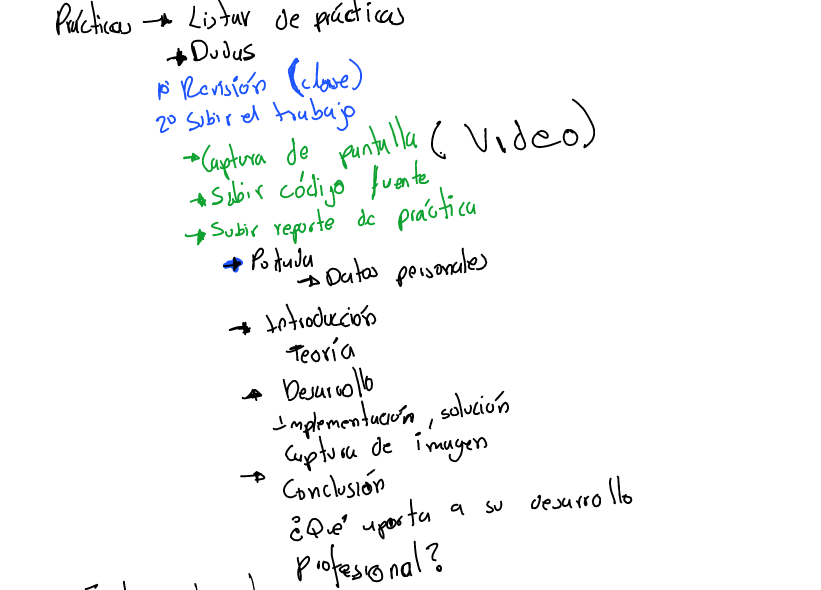 Prácticas → Listar de prácticas
→ Dudas
1º Revisión (clave)
2º Subir el trabajo
→ Captura de pantalla (Video)
→ Subir código fuente
→ Subir reporte de práctica
→ Portada
→ Datos personales
→ Introducción
Teoría
→ Desarrollo
Implementación, solución
Captura de imagen
→ Conclusión
¿Qué aporta a su desarrollo
profesional?